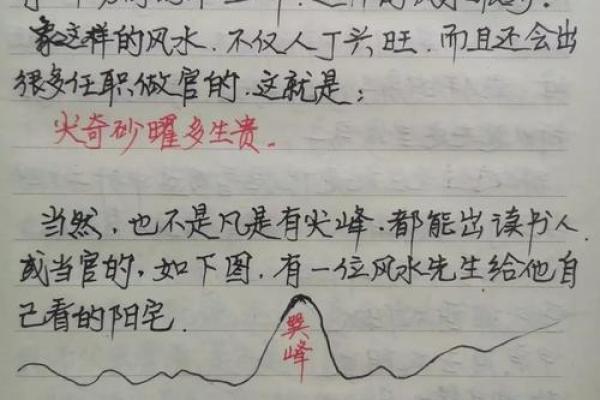 象这样的风水．不仅人丁兴旺．而且还会出
很多任职做官的．这就是：
尖奇砂曜多生贵。
当然，也不是凡是有尖峰．都能出读书人
或当官的，如下图，有一位风水先生给他自
己看的阳宅．
巽
峰